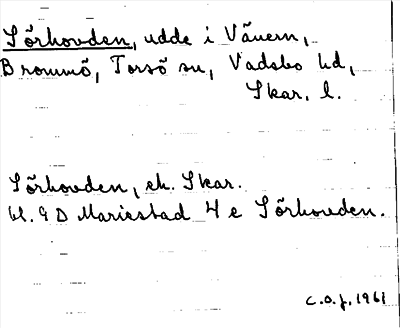 Sörhovden, udde i Vänern,
Brommö, Torsö sn, Vadsbo hd,
Skar. l.
Sörhovden, ek. Skar.
bl. 9 D Mariestad 4 e Sörhovden.
C.O.J. 1961